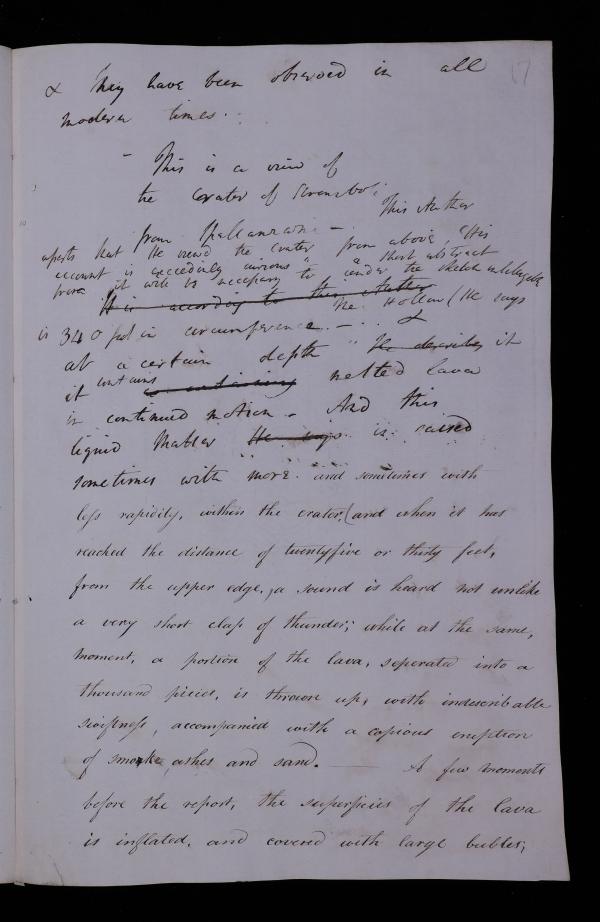 17
& They have been observed in all
modern times.
– This is a view of
the Crater of Stromboli
from Spallanzani – This Author
asserts that He viewed the Crater from above, His
account is exceedingly curious & a short abstract
from it will be necessary to render the sketch intelligible
It is according to this Author
The Hollow (He says
is 340 feet in circumference. – . &
at a certain depth " He describes it
it contains is containing melted Lava
in continued motion – And this
liquid Matter He says is raised
sometimes with more and sometimes with
less rapidity, within the crater, (and when it has
reached the distance of twentyfive or thirty feet,
from the upper edge, a sound is heard not unlike
a very short clap of thunder; while at the same,
moment, a portion of the lava, seperated into a
thousand pieces, is thrown up, with indescribable
swiftness, accompanied with a copious eruption
of smoke, ashes and sand. — A few moments
before the report, the superficies of the lava
is inflated, and covered with large bubles;